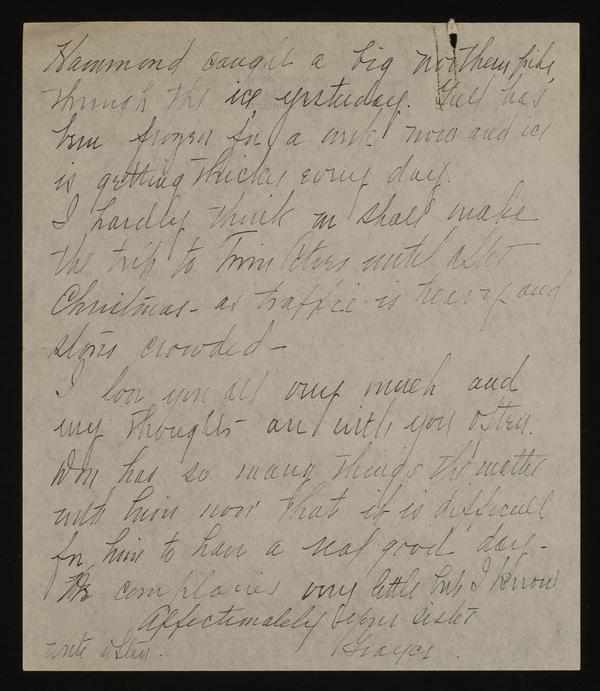 Hammond caught a big northern pike
through the ice yesterday. Gull has
been frozen for a week now and ice
is getting thicker every day.
I hardly think we shall make
the trip to Twin Cities until after
Christmas - as traffic is heavy and
stores crowded -
I love you all very much and
my thoughts are with you often.
has so many things the matter
with him now that it is difficult
for him to have a real good day -
He complains very little but I know
Affectionately your sister
write often.